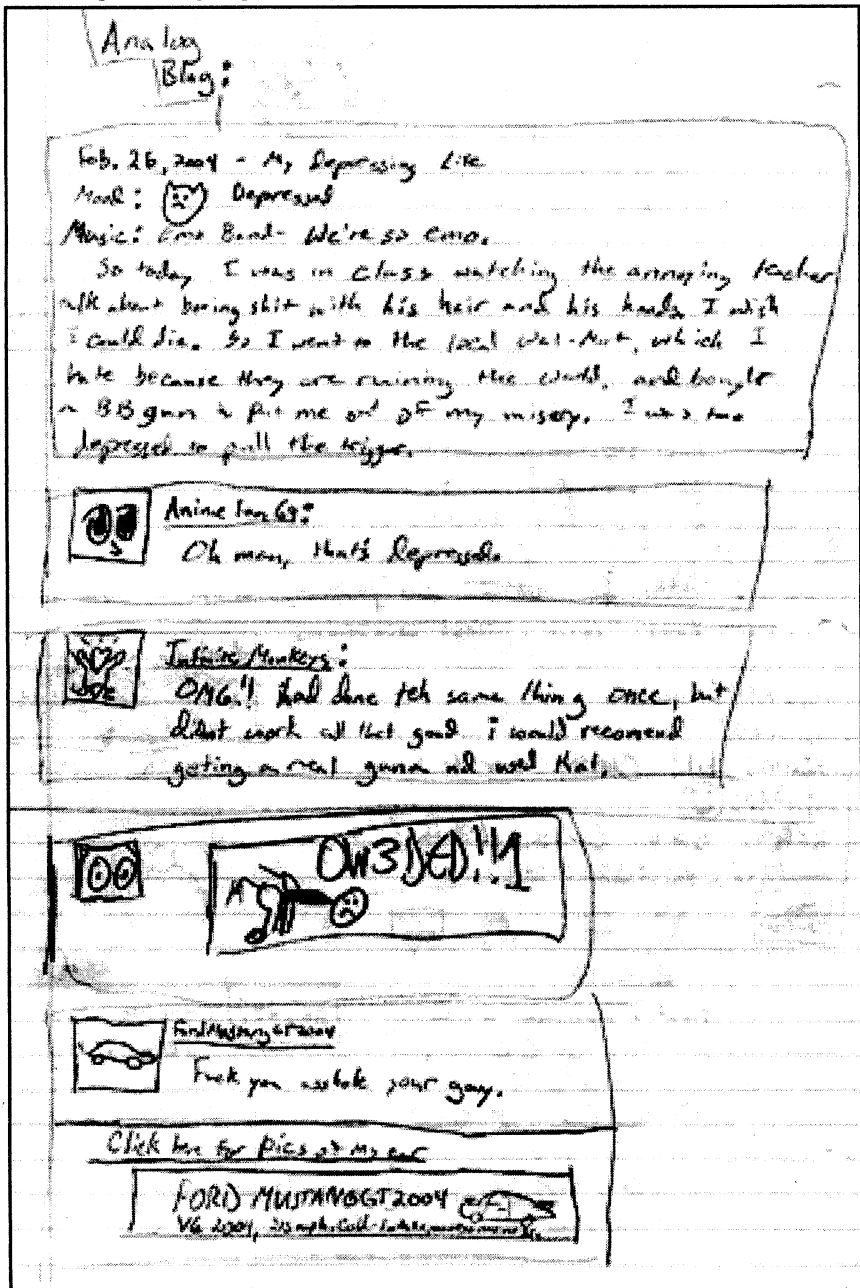 Analog
Blog:
Feb. 26, 2004 - My Depressing Life
Mood: Depressed
Music: Emo Band- We're so emo.
So today I was in class watching the annoying teacher
talk about boring shit with his hair and his hands, I wish
I could die. So I went to the local Wal-Mart, which I
hate because they are ruining the world, and bought
a BB gun to put me out of my misery. I was too
depressed to pull the trigger.
Anime fan 69:
Oh man, that's depressed.
Infinite Monkeys:
OMG!! had done teh same thing once, but
didnt work all that good i would recomend
geting a real gunn ad used that.
OW3D!!1
FordMustangGT2004
Fuck you asshole your gay.
Click here for pics of my car
FORD MUSTANGGT2004
V6 2004,